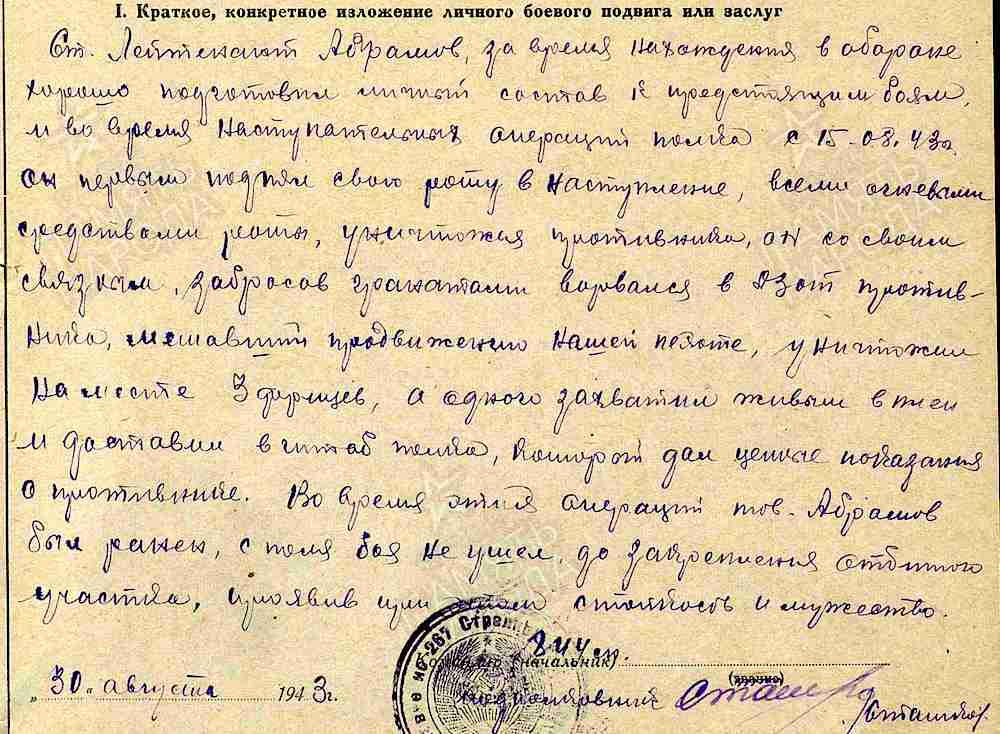 I. Краткое, конкретное изложение личного боевого подвига или заслуг
Ст. Лейтенант Абрамов, за время нахождения в обароне
хорошо подготовил личный состав к предстоящим боям,
и во время наступательных операций полка с 15-08.43г.
он первым поднял свою роту в наступление, всеми огневыми
средствами роты, уничтожая противника, он со своим
связным, забросов гранатами ворвался в Дзот против-
ника, мешавший продвижению нашей пехоте, уничтожил
на месте 3 фрицев, а одного захватил живым в плен
и доставил в штаб полка, который дал ценные показания
о противнике. Во время этих операций тов. Абрамов
был ранен, с поля боя не ушел, до закрепления отбитого
участка, проявив при этом стойкость и мужество.
№ 267 Стрелк
844 сп.
Командир (начальник)
(звание)
„30" августа 1943г.
подполковник